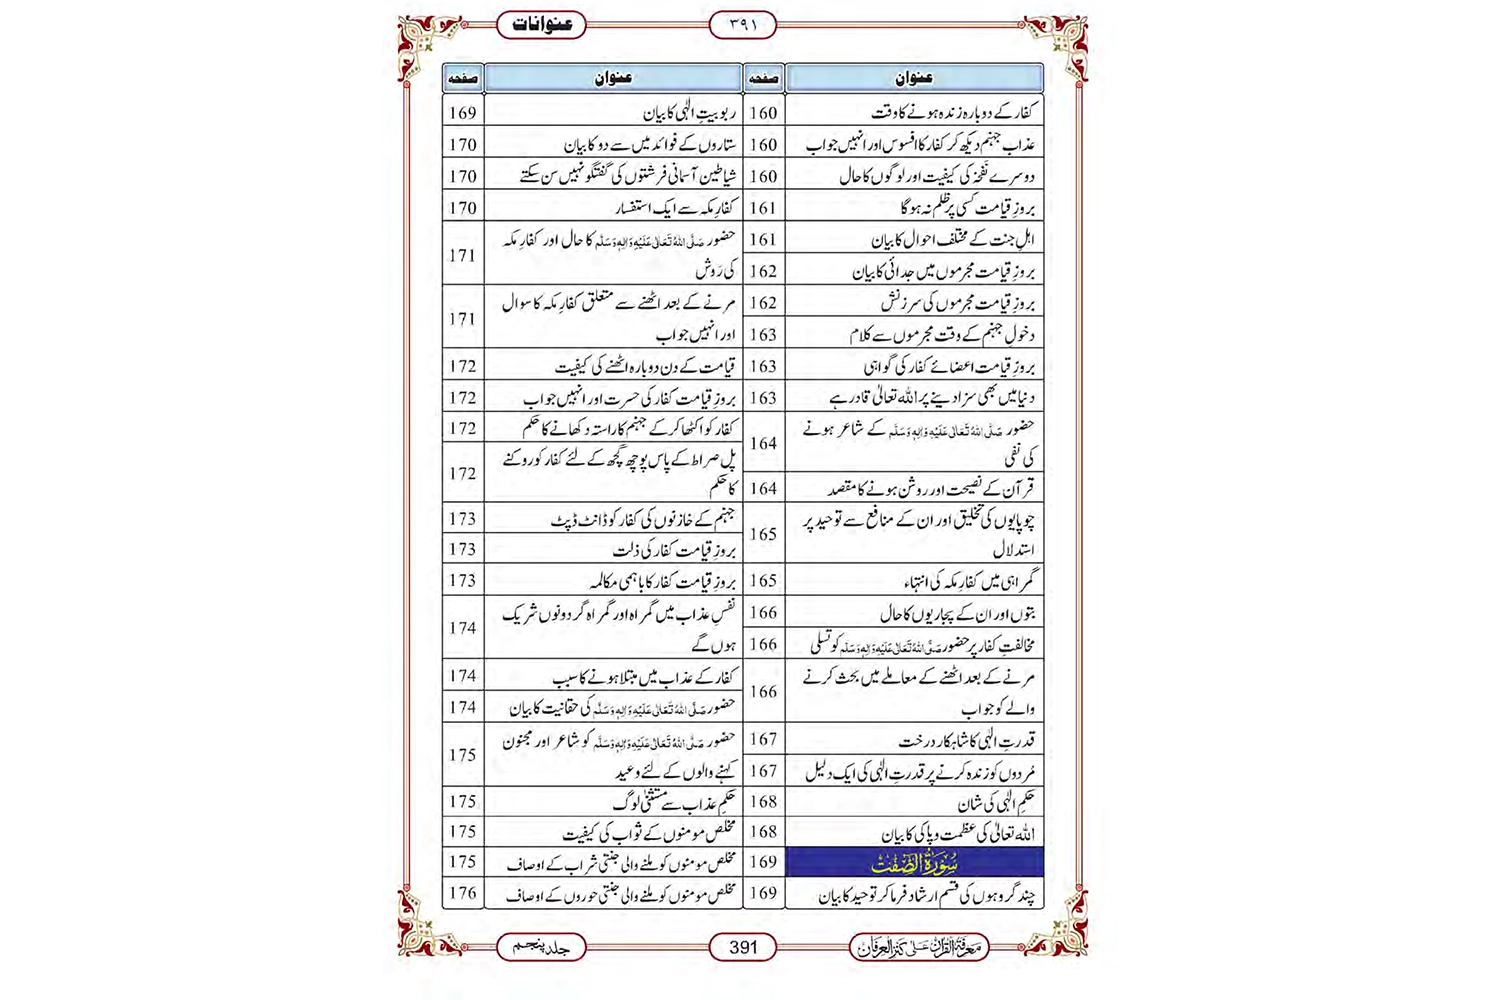 عنوانات
۳۹۱
عنوان صفحہ
کفار کے دوبارہ زندہ ہونے کا وقت 160
عذابِ جہنم دیکھ کر کفار کا افسوس اور انہیں جواب 160
دوسرے نَفخہ کی کیفیت اور لوگوں کا حال 160
بروزِ قیامت کسی پر ظلم نہ ہوگا 161
اہلِ جنت کے مختلف احوال کا بیان 161
بروزِ قیامت مجرموں میں جدائی کا بیان 162
بروزِ قیامت مجرموں کی سرزنش 162
دخولِ جہنم کے وقت مجرموں سے کلام 163
بروزِ قیامت اعضائے کفار کی گواہی 163
دنیا میں بھی سزا دینے پر اللہ تعالیٰ قادر ہے 163
حضور صَلَّی اللہُ تَعَالٰی عَلَیْہِ وَاٰلِہٖ وَسَلَّم کے شاعر ہونے
کی نفی 164
قرآن کے نصیحت اور روشن ہونے کا مقصد 164
چوپایوں کی تخلیق اور ان کے منافع سے توحید پر
استدلال 165
گمراہی میں کفارِ مکہ کی انتہاء 165
بتوں اور ان کے پجاریوں کا حال 166
مخالفتِ کفار پر حضور صَلَّی اللہُ تَعَالٰی عَلَیْہِ وَاٰلِہٖ وَسَلَّم کو تسلی 166
مرنے کے بعد اٹھنے کے معاملے میں بحث کرنے
والے کو جواب 166
قدرتِ الٰہی کا شاہکار درخت 167
مُردوں کو زندہ کرنے پر قدرتِ الٰہی کی ایک دلیل 167
حکمِ الٰہی کی شان 168
اللہ تعالیٰ کی عظمت و پاکی کا بیان 168
سُوْرَۃُ الصّٰفّٰت 169
چند گروہوں کی قسم ارشاد فرما کر توحید کا بیان 169
عنوان صفحہ
ربوبیتِ الٰہی کا بیان 169
ستاروں کے فوائد میں سے دو کا بیان 170
شیاطین آسمانی فرشتوں کی گفتگو نہیں سن سکتے 170
کفارِ مکہ سے ایک استفسار 170
حضور صَلَّی اللہُ تَعَالٰی عَلَیْہِ وَاٰلِہٖ وَسَلَّم کا حال اور کفارِ مکہ
کی رَوِش 171
مرنے کے بعد اٹھنے سے متعلق کفارِ مکہ کا سوال
اور انہیں جواب 171
قیامت کے دن دوبارہ اٹھنے کی کیفیت 172
بروزِ قیامت کفار کی حسرت اور انہیں جواب 172
کفار کو اکٹھا کر کے جہنم کا راستہ دکھانے کا حکم 172
پل صراط کے پاس پوچھ گچھ کے لئے کفار کو روکنے
کا حکم 172
جہنم کے خازنوں کی کفار کو ڈانٹ ڈپٹ 173
بروزِ قیامت کفار کی ذلت 173
بروزِ قیامت کفار کا باہمی مکالمہ 173
نفسِ عذاب میں گمراہ اور گمراہ گر دونوں شریک
ہوں گے 174
کفار کے عذاب میں مبتلا ہونے کا سبب 174
حضور صَلَّی اللہُ تَعَالٰی عَلَیْہِ وَاٰلِہٖ وَسَلَّم کی حقانیت کا بیان 174
حضور صَلَّی اللہُ تَعَالٰی عَلَیْہِ وَاٰلِہٖ وَسَلَّم کو شاعر اور مجنون
کہنے والوں کے لئے وعید 175
حکمِ عذاب سے مستثنٰی لوگ 175
مخلص مومنوں کے ثواب کی کیفیت 175
مخلص مومنوں کو ملنے والی جنتی شراب کے اوصاف 175
مخلص مومنوں کو ملنے والی جنتی حوروں کے اوصاف 176
معرفۃُ القرآن علیٰ کنزُ العرفان
391
جلد پنجم